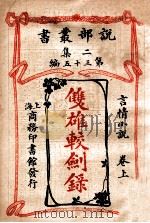 說部叢書
二集
第三十五編
言情小說
卷上
雙雄較劍錄
上海
商務印書館發行